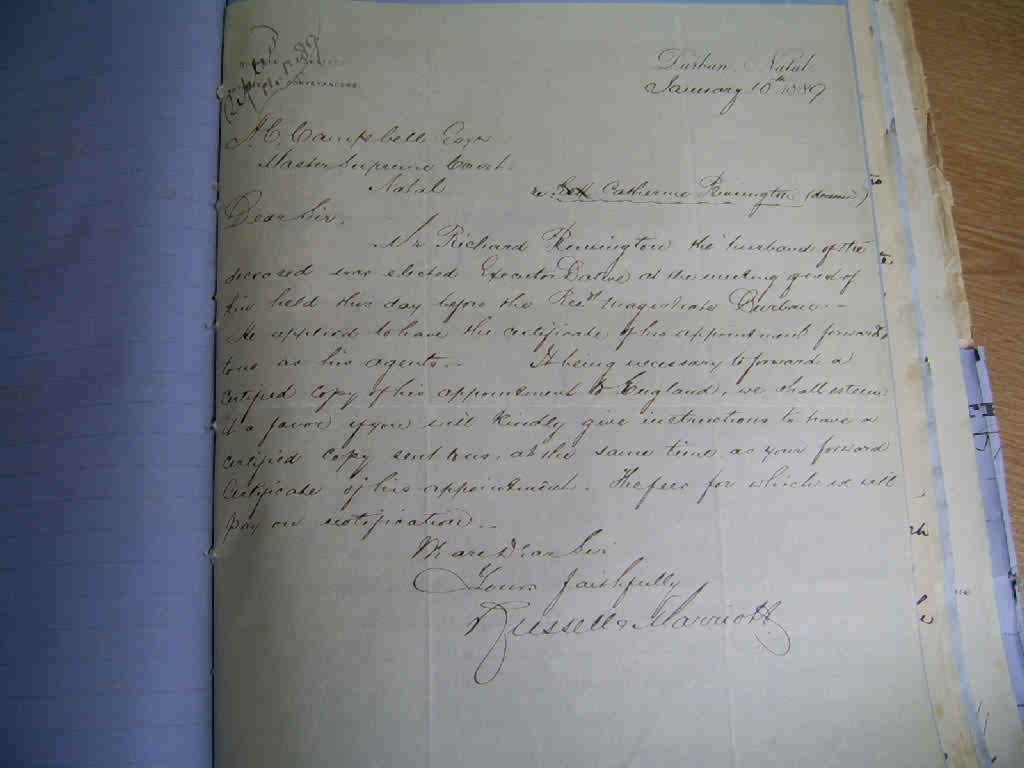 CONVEYANCERS
Durban, Natal.
January 10th 1889
A. C. Campbell Esqr
Master Supreme Court
Natal
re Catherine Rennington (deceased)
Dear Sir,
Mr Richard Rennington the husband of the
deceased was elected Executor Dative at the meeting of
kin held this day before the Rest Magistrate Durban -
He applied to have the certificate of his appointment forwarded
to us as his agents. - It being necessary to forward a
certified copy of his appointment to England, we shall esteem
it a favor if you will kindly give instructions to have a
certified copy sent to us, at the same time as you forward
Certificate of his appointment. The fees for which we will
pay on notification. -
We are Dear Sir
Yours faithfully
Russell & Marriott